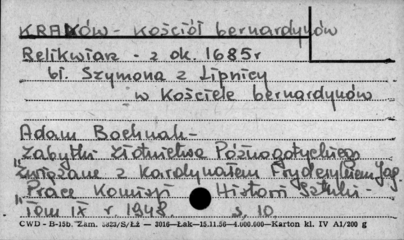 KRAKÓW - Kościół bernardynów
Relikwiarz - z ok. 1685r
bł. Szymona z Lipnicy
w Kościele bernardynów
Adam Bochnak -
"Zabytki Złotnictwa Późnogotyckiego
Związane z Kardynałem Fryderykiem Jag.
"Prace Komisji Historii Sztuki -
"Tom IX r. 1948. s. 10
CWD - B-15b. Zam. 5823/S/Łż — 3016—Łak—15.11.56—4.000.000—Karton kl. IV A1/200 g